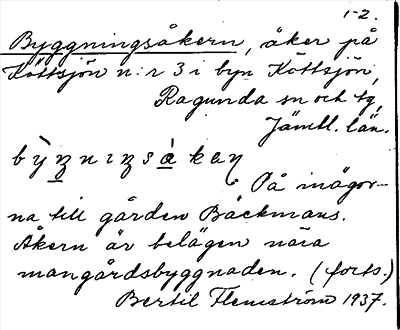 1-2.
Byggningsåkern, åker på
Köttsjön n:r 3 i byn Köttsjön,
Ragunda sn och tg,
Jämtl. län.
På inägor-
na till gården Bäckmans.
Åkern är belägen nära
mangårdsbyggnaden. (forts.)
Bertil Flemström 1937.